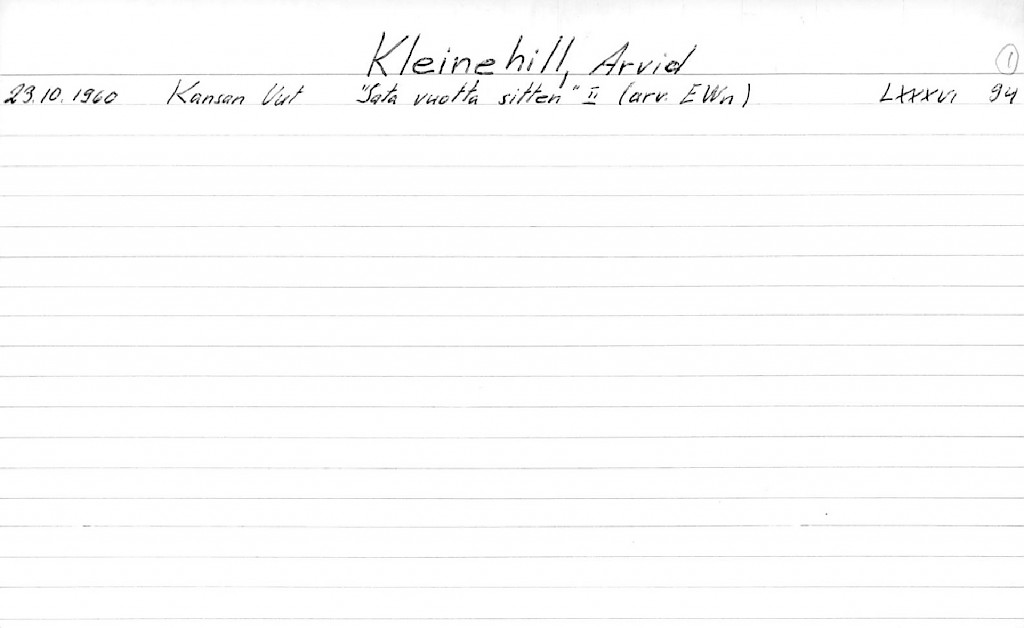 Kleinehill, Arvid 1
23.10.1960 Kansan Uut "Sata vuotta sitten" II (arv. EWn) LXXXVI 94